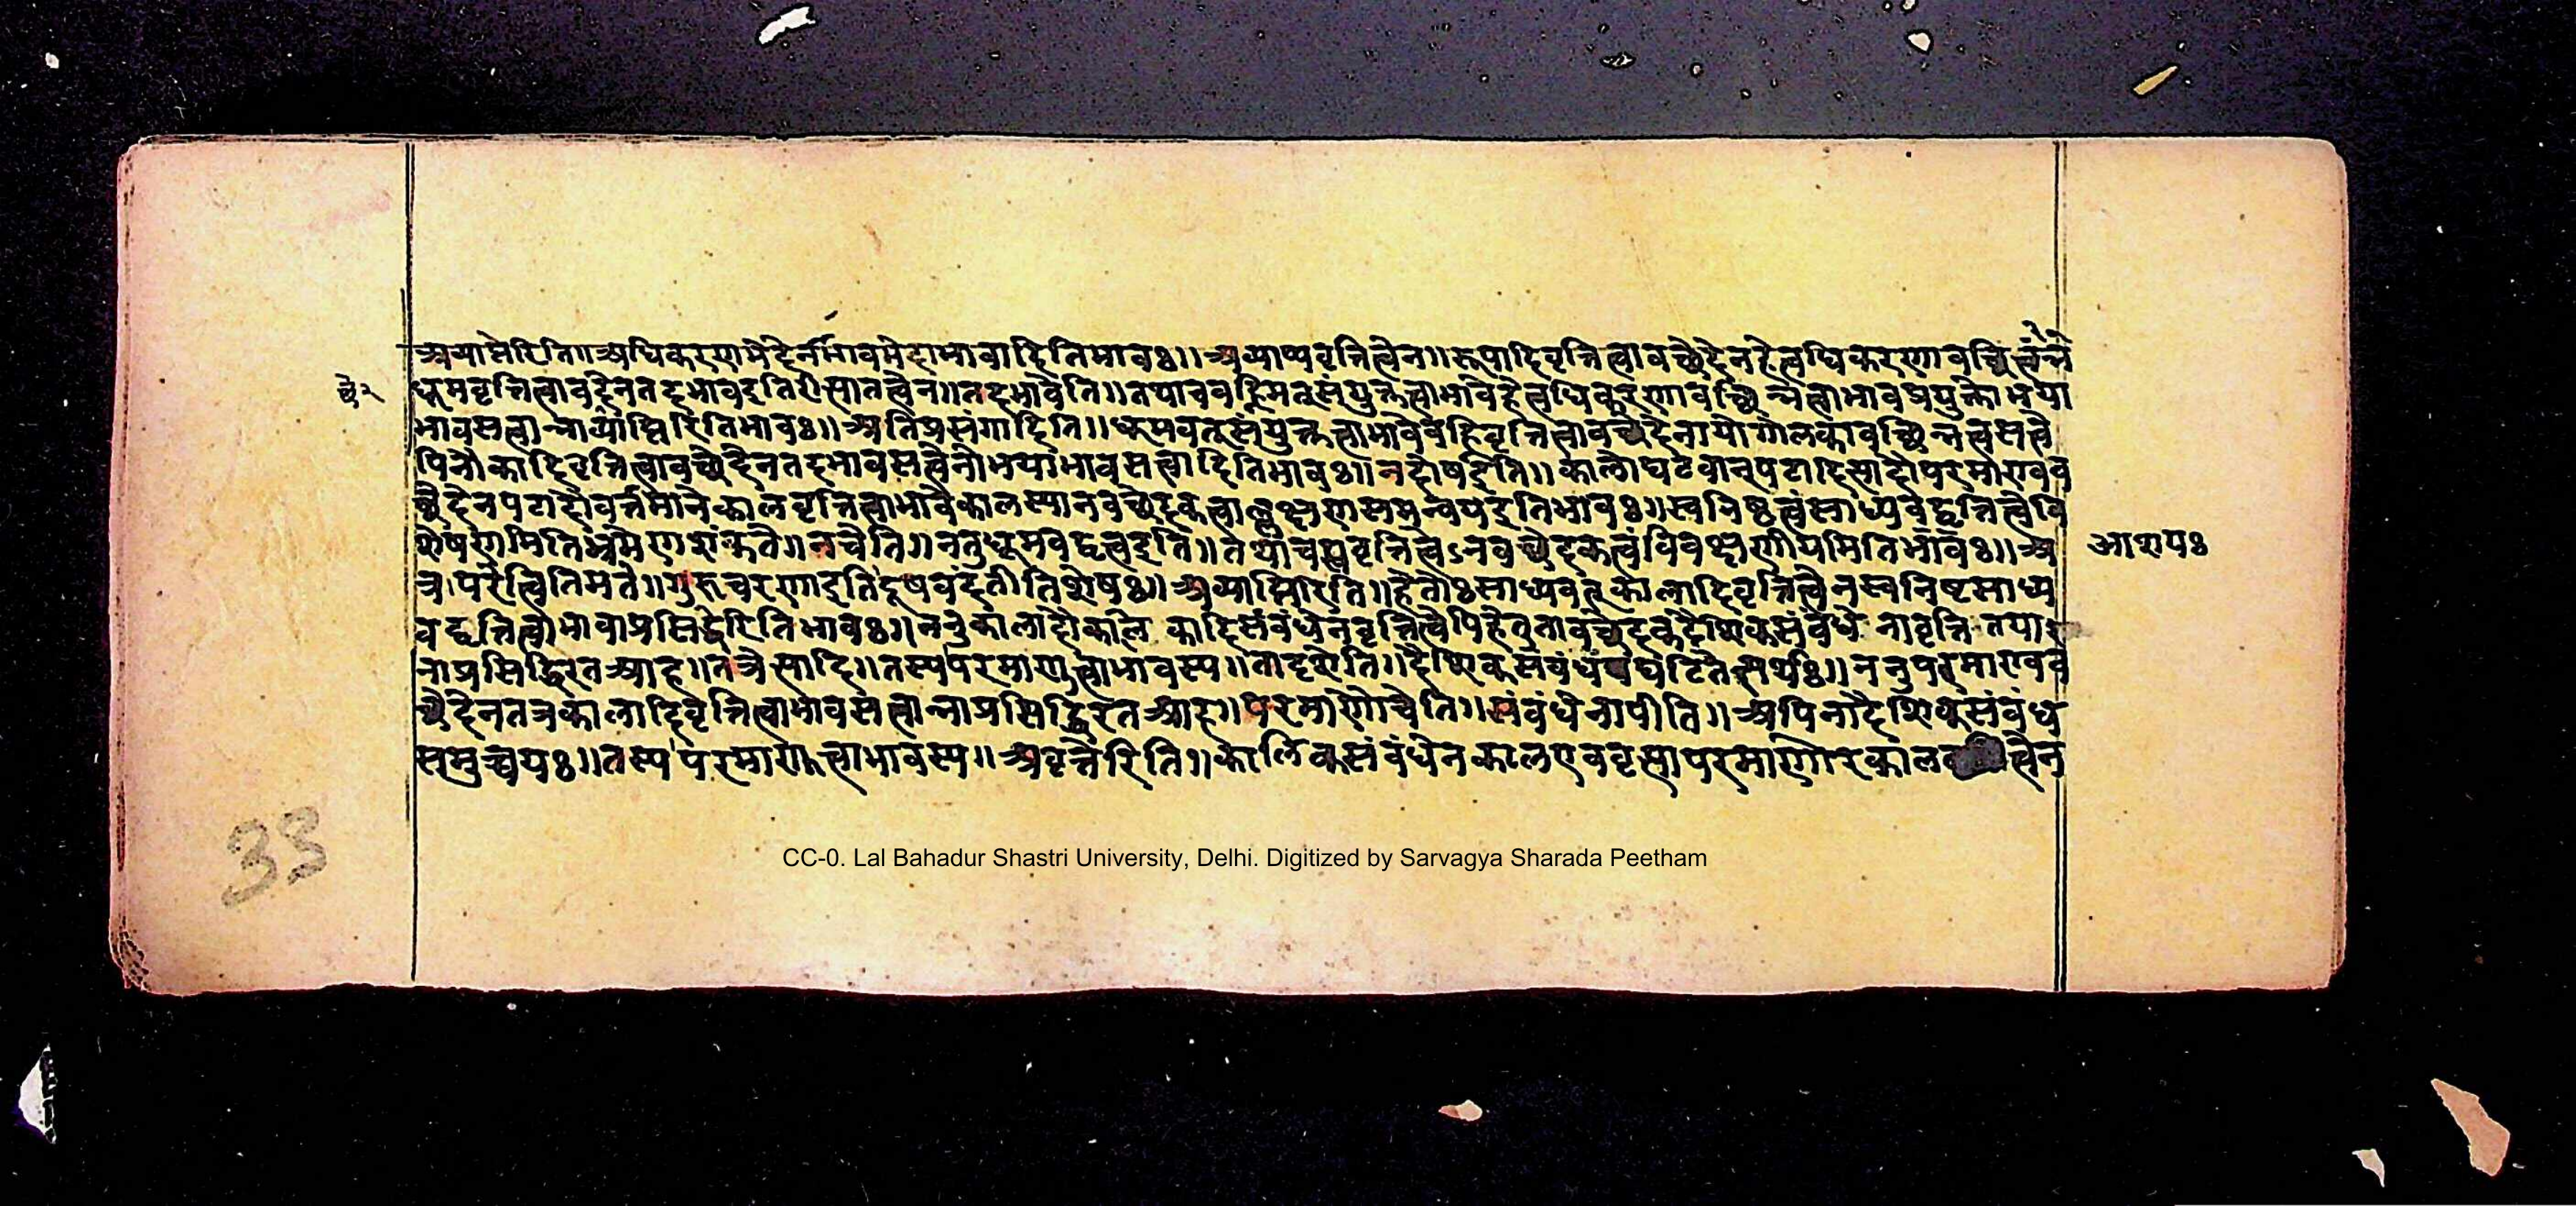 अव्याप्तेरिति॥अधिकरणभेदेनाभावभेदाभावादितिभावः॥अव्याप्यवृत्तित्वेन॥रूपादिवृत्तित्वावच्छेदेनहेत्वधिकरणावच्छिन्नत्वं
च्छे२
धूमवृत्तित्वावदेनतदभावइतिशेसातत्वेन॥तदभावेति॥तथाचवह्निमत्संयुक्तत्वाभावेहेत्वधिकरणावच्छिन्नत्वाभावप्रयुक्तोभया
भावसत्वान्नाव्याप्तिरितिभावः॥अतिप्रसंगादिति॥धूमवत्संयुक्तत्वाभावेवह्निवृत्तित्वावच्छेदेनायोगोलकावच्छिन्नत्वसत्वे
पिनौकादिवृत्तित्वावच्छेदेनतदभावसत्वेनोभयाभावसत्वादितिभावः॥नदोषइति॥कालोघटवान्पटादित्यादौपरमाण्वव
च्छेदेनपटादौवर्त्तमानेकालवृत्तित्वाभावेकालस्यानवच्छेदकत्वाल्लक्षणसमन्वयइतिभावः॥स्वनिष्ठत्वंसाध्यवद्वृत्तित्वेवि
शेषणमितिभ्रमेणशंकते॥नचेति॥ननुधूमवद्वत्वइति॥तथाचस्ववृत्तित्वेऽनवच्छेदकत्वंविवक्षणीयमितिभावः॥अ
आशयः
त्र।परेत्वितिमते॥गुरुचरणाइतिदूषवंदतीतिशेषः॥अव्याप्तिरिति॥हेतौःसाध्यवत्कालादिवृत्तित्वेनस्वनिष्टसाध्य
वद्वृत्तित्वाभावाप्रसिद्धेरितिभावः॥ननुकालादौकालिकादिसंबंधेनवृत्तित्वेपिहेतुतावच्छेदकदैशिकसंबंधेनावृत्तितया
नाप्रसिद्धिरतआह॥तत्रेत्यादि॥तस्यपरमाणुत्वाभावस्य॥तादृशेति॥दैशिकसंबंधघटितेत्यर्थः॥ननुपरमाण्वव
च्छेदेनतत्रकालादिवृत्तित्वाभावसत्वान्नाप्रसिद्धिरतआह॥परमाणोश्चेति॥संबंधेनापीति॥अपिनादैशिकसंबंध
समुच्चयः॥तस्यपरमाणुत्वाभावस्य॥अवृत्तेरिति॥कालिकसंबंधेनकालएववृत्यापरमाणोरकाल त्वेन
33
CC-0. Lal Bahadur Shastri University, Delhi. Digitized by Sarvagya Sharada Peetham